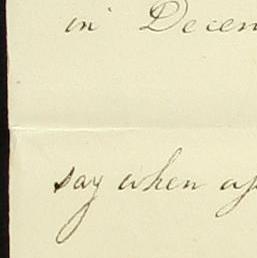 in Decem
say when